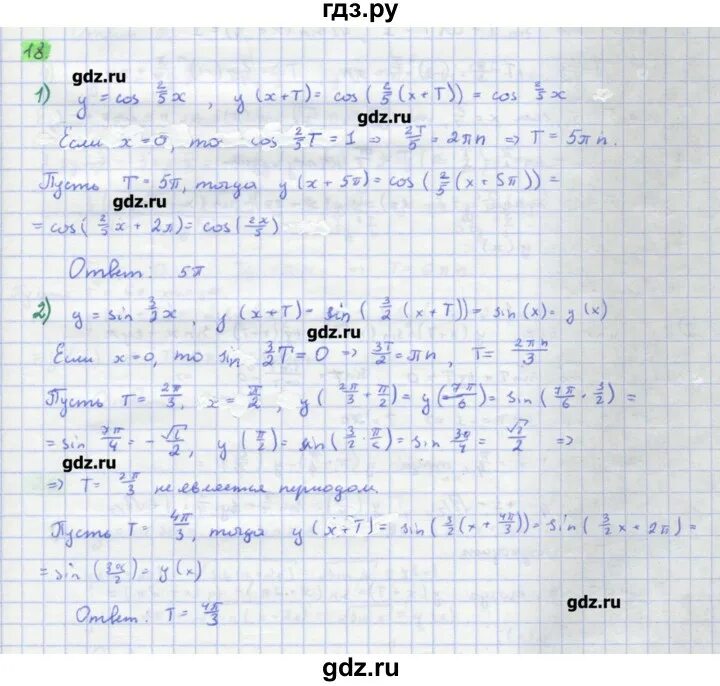 гдз.ру
18.
gdz.ru
1) y = cos 2/5 x , y (x+T) = cos(2/5 (x+T)) = cos 2/5 x
gdz.ru
Если x=0, то cos 2/5 T = 1 ⇒ 2T/5 = 2πn ⇒ T = 5πn.
Пусть T = 5π, тогда y (x+5π) = cos(2/5 (x+5π)) =
gdz.ru
= cos(2/5 x + 2π) = cos(2x/5)
Ответ: 5π
2) y = sin 3/2 x , y (x+T) = sin (3/2 (x+T)) = sin(x) = y(x)
gdz.ru
Если x=0, то sin 3/2 T = 0 ⇒ 3T/2 = πn , T = 2πn/3
Пусть T = 2π/3, x = π/2 , y (2π/3 + π/2) = y(7π/6) = sin (7π/6 · 3/2) =
= sin 7π/4 = - √2/2, y (π/2) = sin(3/2 · π/2) = sin 3π/4 = √2/2 ⇒
gdz.ru
⇒ T = 2π/3 не является периодом.
Пусть T = 4π/3, тогда y (x+T) = sin(3/2 (x + 4π/3)) = sin (3/2 x + 2π) =
= sin (3x/2) = y(x)
gdz.ru
Ответ: T = 4π/3
gdz.ru